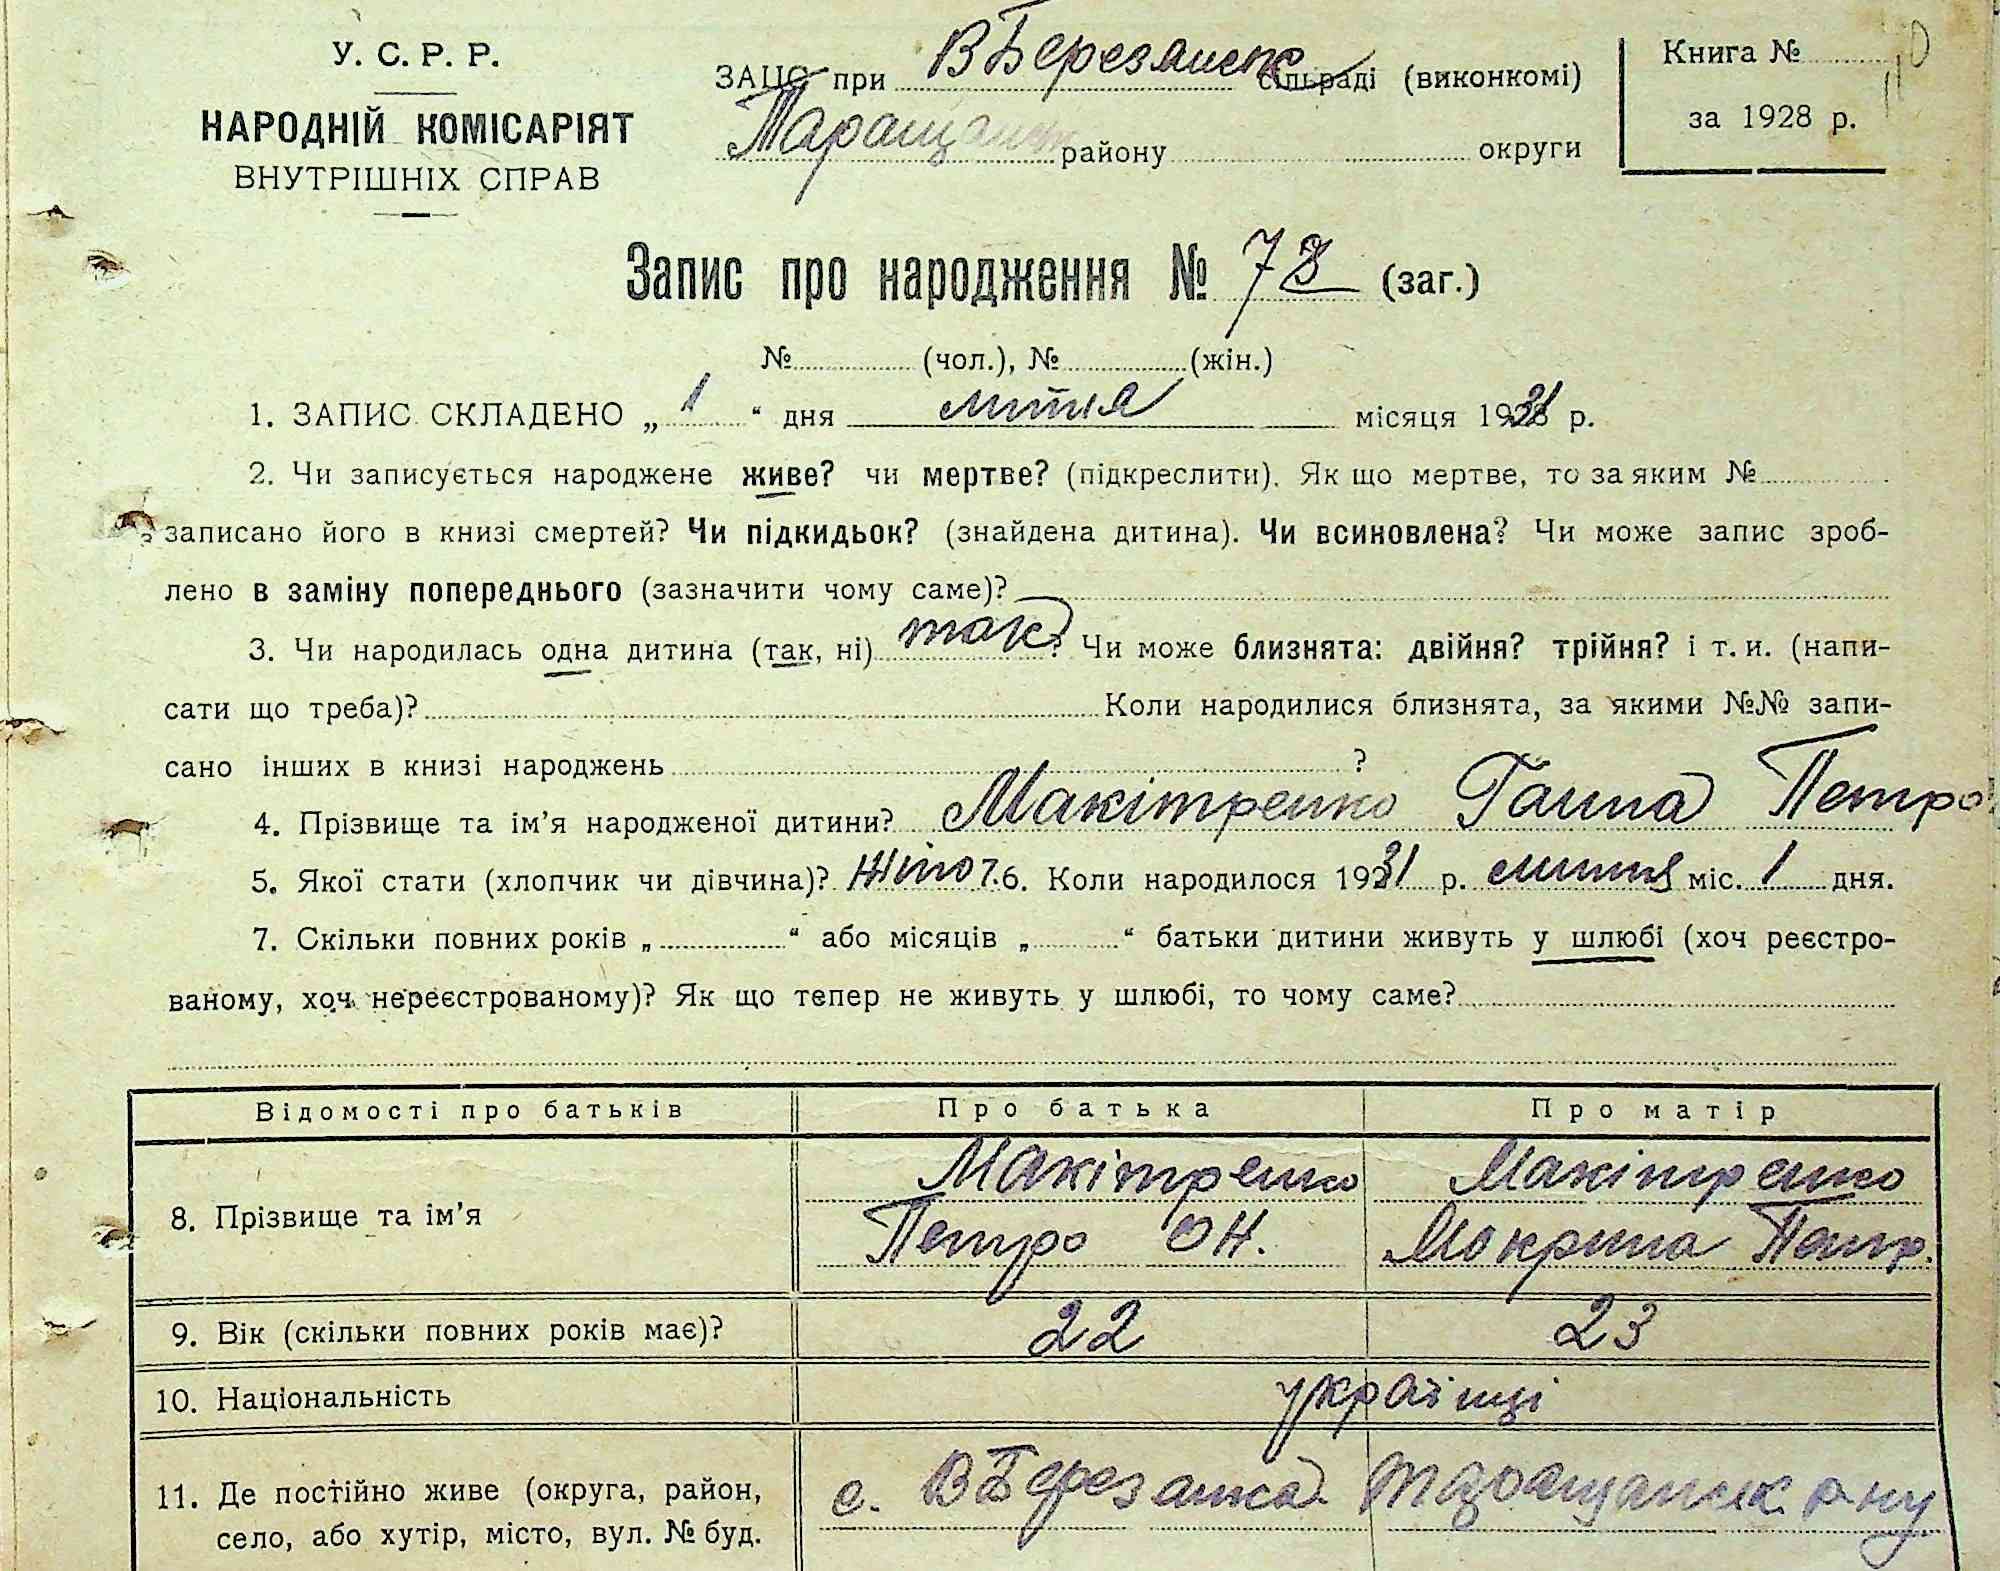 У. С. Р. Р.
НАРОДНІЙ КОМІСАРІЯТ
ВНУТРІШНІХ СПРАВ
ЗАЦС при В Березанськ сільраді (виконкомі)
Таращанськ району округи
Книга №
за 1928 р.
Запис про народження № 78 (заг.)
№ (чол.), № (жін.)
1. ЗАПИС СКЛАДЕНО „ 1 “ дня липня місяця 1931 р.
2. Чи записується народжене живе? чи мертве? (підкреслити). Як що мертве, то за яким №
записано його в книзі смертей? Чи підкидьок? (знайдена дитина). Чи всиновлена? Чи може запис зроб-
лено в заміну попереднього (зазначити чому саме)?
3. Чи народилась одна дитина (так, ні) так? Чи може близнята: двійня? трійня? і т. и. (напи-
сати що треба)? Коли народилися близнята, за якими №№ запи-
сано інших в книзі народжень ?
4. Прізвище та ім’я народженої дитини? Макітренко Ганна Петро
5. Якої стати (хлопчик чи дівчина)? жіноч. 6. Коли народилося 1931 р. липня міс. 1 дня.
7. Скільки повних років „ “ або місяців „ “ батьки дитини живуть у шлюбі (хоч реєстро-
ваному, хоч нереєстрованому)? Як що тепер не живуть у шлюбі, то чому саме?
Відомості про батьків Про батька Про матір
8. Прізвище та ім’я Макітренко Петро Он. Макітренко Мокрина Петр.
9. Вік (скільки повних років має)? 22 23
10. Національність українці
11. Де постійно живе (округа, район, с. В Березанка Таращанськ р-ну
село, або хутір, місто, вул. № буд.